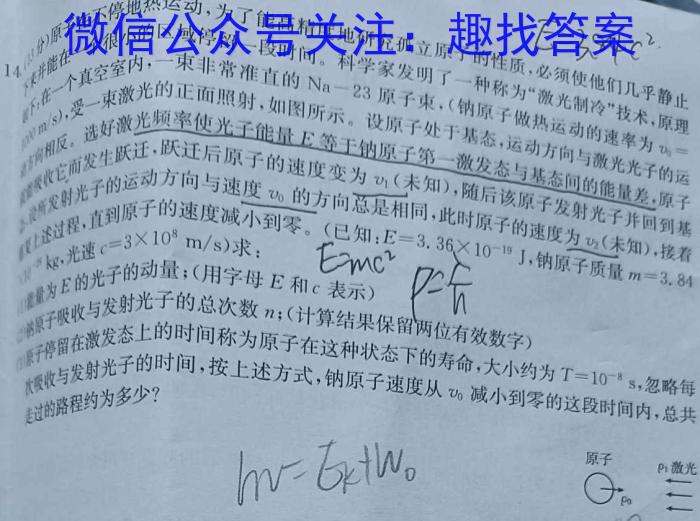 微信公众号关注：趣找答案
14.(15分)原子不停地热运动,为了能高精度地研究孤立原子的性质,必须使他们几乎静止
下来并能在一个很小的区域停留一段时间。科学家发明了一种称为“激光制冷”技术,原理
如下:在一个真空室内,一束非常准直的Na-23原子束,(钠原子做热运动的速率为v₀=
1000 m/s),受一束激光的正面照射,如图所示。设原子处于基态,运动方向与激光光子的运
动方向相反。选好激光频率使光子能量E等于钠原子第一激发态与基态间的能量差,原子
能吸收它而发生跃迁,跃迁后原子的速度变为v₁(未知),随后该原子发射光子并回到基
态,设所发射光子的运动方向与速度v₀的方向总是相同,此时原子的速度为v₂(未知),接着
重复上述过程,直到原子的速度减小到零。(已知:E=3.36×10⁻¹⁹ J,钠原子质量m=3.84
kg,光速c=3×10⁸ m/s)求:
E=mc²
能量为E的光子的动量;(用字母E和c表示)
钠原子吸收与发射光子的总次数n;(计算结果保留两位有效数字)
原子停留在激发态上的时间称为原子在这种状态下的寿命,大小约为T=10⁻⁸ s,忽略每
次吸收与发射光子的时间,按上述方式,钠原子速度从v₀减小到零的这段时间内,总共
走过的路程约为多少?
hν=Eₖ+W₀
原子
p₁激光
p₀